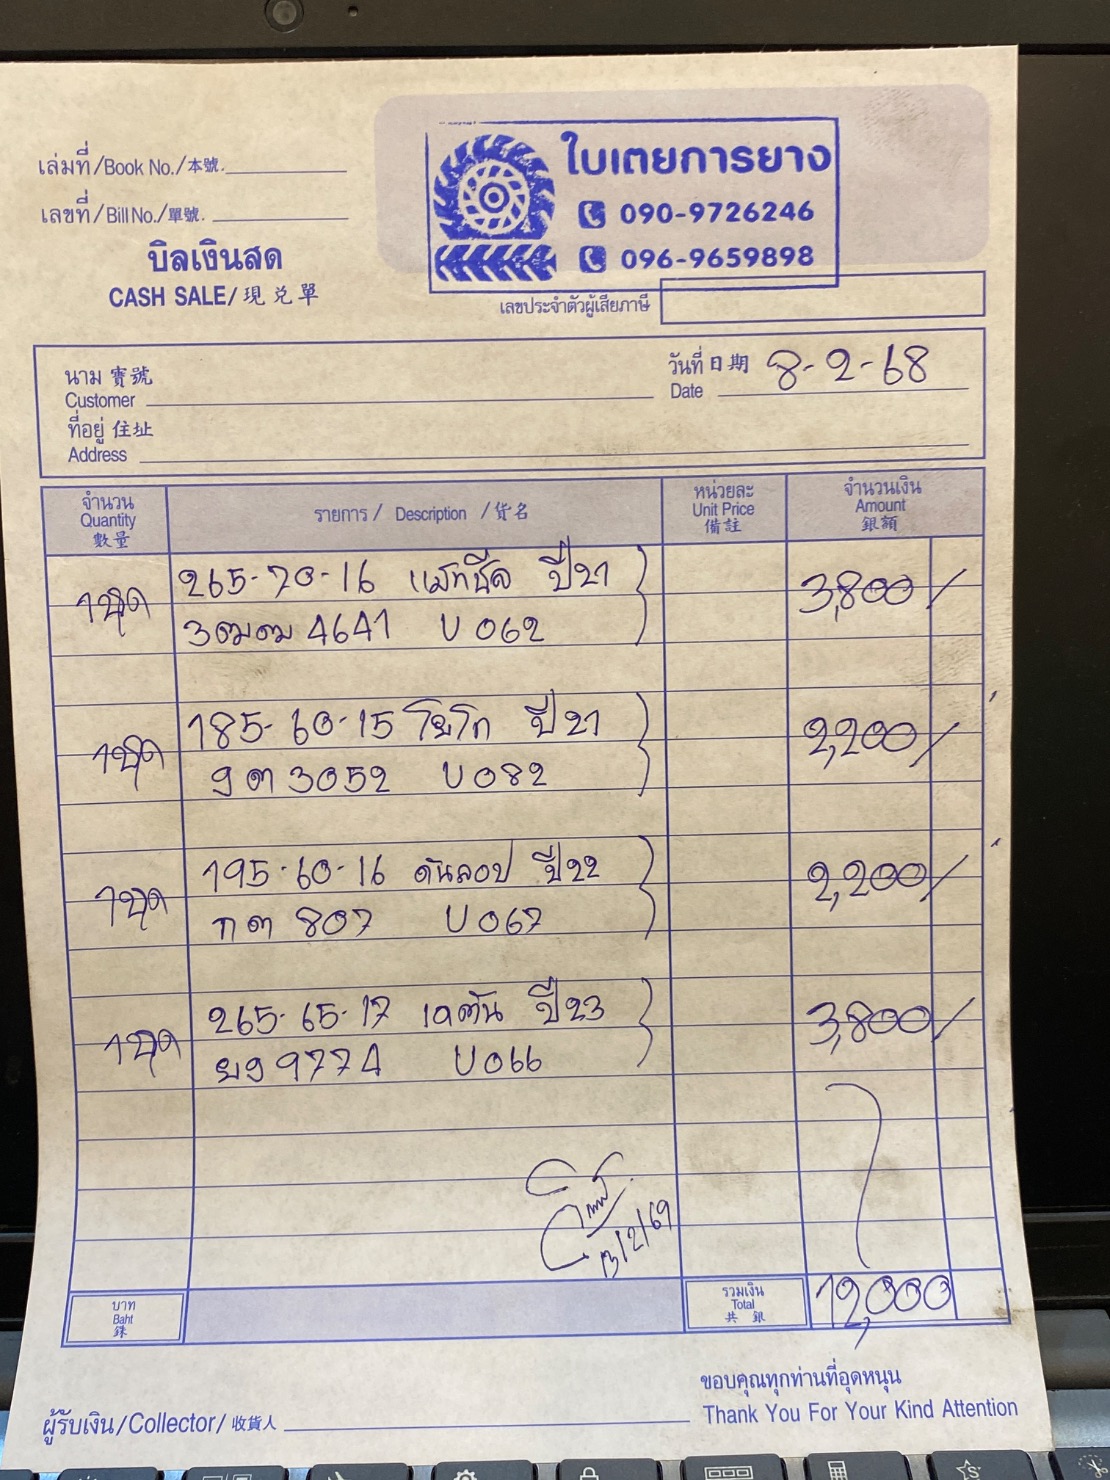 ใบเตยการยาง
090-9726246
096-9659898
เล่มที่/Book No./本號.
เลขที่/Bill No./單號.
บิลเงินสด
CASH SALE/現兑單
เลขประจำตัวผู้เสียภาษี
นาม 寳號
Customer
วันที่ 日期 8-2-68
Date
ที่อยู่ 住址
Address
จำนวน
Quantity
數量
รายการ / Description / 貨名
หน่วยละ
Unit Price
備註
จำนวนเงิน
Amount
銀額
1ชุด 265-70-16 แม็กซีส ปี21 3,800/
3ฒฒ 4641 ป 062
1ชุด 185-60-15 โยโก ปี21 2,200/
9ต 3052 ป 082
1ชุด 195-60-16 ดันลอป ปี22 2,200/
กต 807 ป 067
1ชุด 265-65-17 เจตัน ปี23 3,800/
ยจ 9774 ป 066
13/2/69
บาท
Baht
銖
รวมเงิน
Total
共銀
12,000
ขอบคุณทุกท่านที่อุดหนุน
ผู้รับเงิน/Collector/收貨人
Thank You For Your Kind Attention